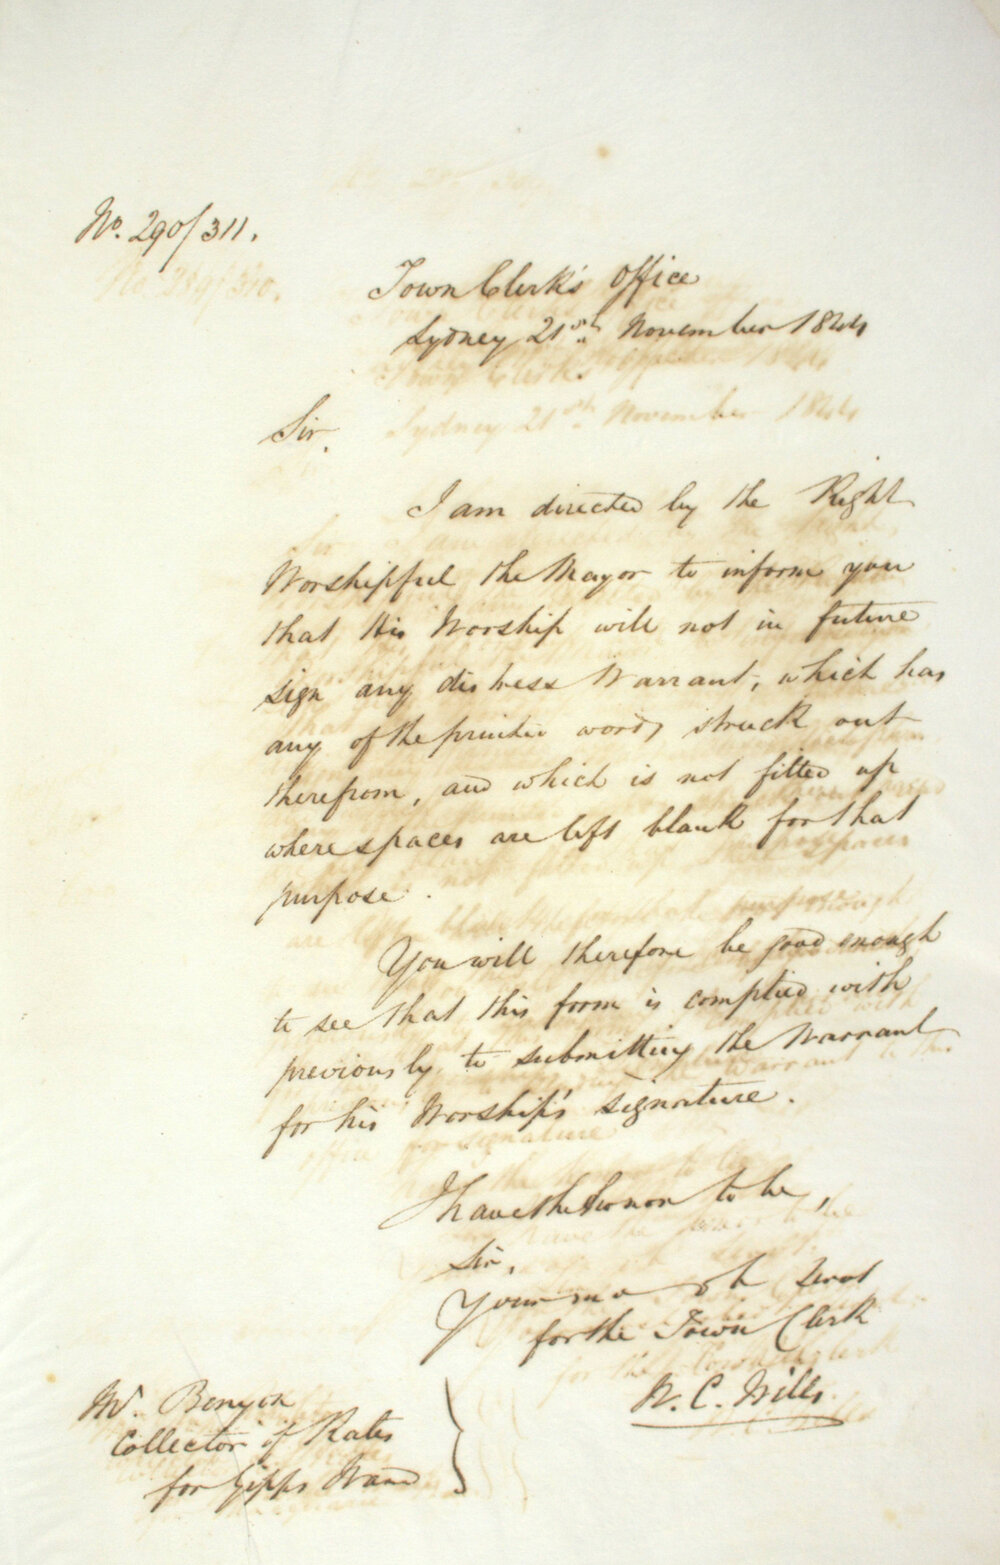 No. 290/311.
Town Clerk's Office
Sydney 21st November 1844
Sir,
I am directed by the Right
Worshipful the Mayor to inform you
that His Worship will not in future
sign any distress Warrant, which has
any of the printed words struck out
therefrom, and which is not filled up
where spaces are left blank for that
purpose.
You will therefore be good enough
to see that this form is complied with
previously to submitting the Warrant
for his Worship's signature.
I have the honor to be,
Sir,
Your mo ob Servt
for the Town Clerk
W. C. Wills
Mr. Benyon
Collector of Rates
for Gipps Ward